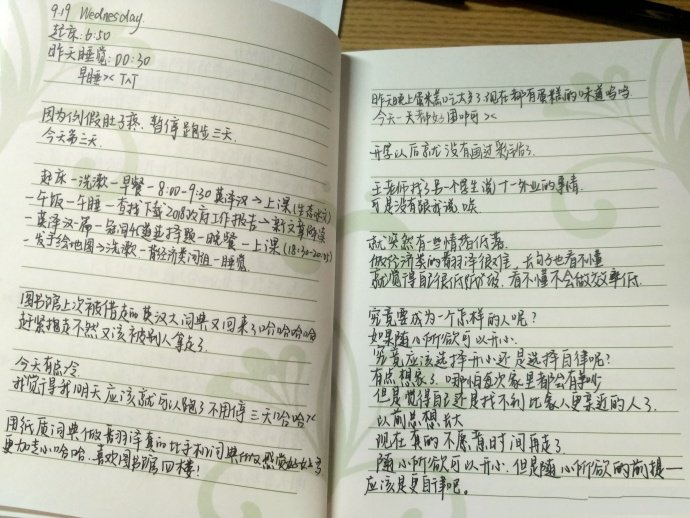 9.19 Wednesday
起床:6:50
昨天睡觉:00:30
早睡× TAT
因为例假肚子疼,暂停跑步三天.
今天第三天.
起床-洗漱-早餐-8:00-9:30英译汉→上课(生态
-午饭-午睡-查找下载2018政府工作报告→新文章阅读
-英译汉一篇-
-发手绘地图→洗漱-背经济类词组-睡觉.
图书馆上次被借走的英汉大词典又回来了哈哈哈哈哈
赶紧抱走不然又该被别人拿走了.
今天有点冷
我觉得我明天应该就可以跑了不用停三天哈哈×
用纸质词典做翻译真的比手机词典做感觉好好多
更加走心哈哈.喜欢图书馆四楼!
昨天晚上蛋糕吃太多了.现在都有蛋糕的味道呜呜.
今天一天都好困啊××
开学以后就没有画过彩铅了.
王老师找了另一个学生说十一外业的事情.
可是没有跟我说.唉
就突然有一些情绪低落.
做经济类的翻译很难.长句子也看不懂
就觉得自己很低.看不懂不会做效率低.
究竟要成为一个怎样的人呢?
如果随心所欲可以开心.
究竟应该选择开心还是选择自律呢?
有点想家了.哪怕每次家里都会有争吵
但是觉得自己还是找不到比家人更亲近的人了.
以前总想长大
现在真的不愿意时间再走了.
随心所欲可以开心.但是随心所欲的前提一
应该是更自律吧。